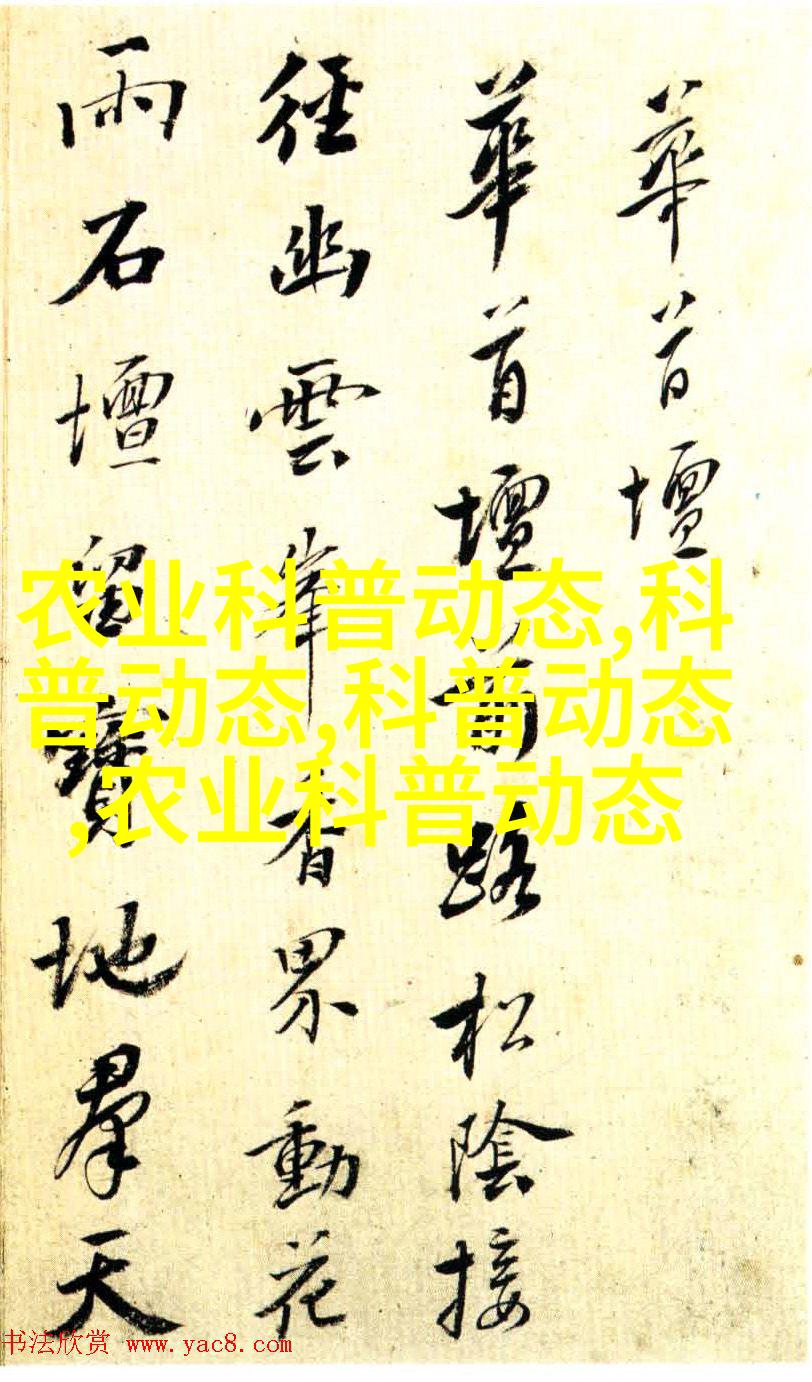 華首壇
華首壇前路松陰接
徑幽雲峯香界動花
雨石壇留寶地羣天
农业科普动态,科
普动态,科普动态
,农业科普动态
书法欣赏 www.yac8.com